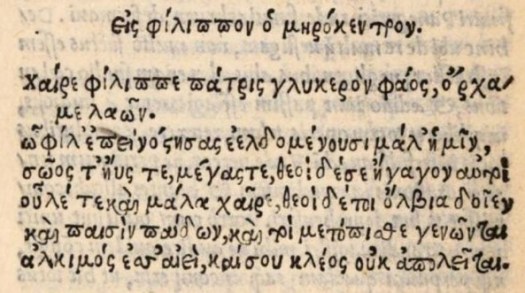 Εἰς φίλιππον ὁμηρόκεντρον.
Χαῖρε φίλιππε πάτρις γλυκερὸν φάος, ὄρχα/
με λαῶν.
ὦ φίλ' ἐπεὶ νόςησας ἐελδομένουσι μάλ' ἡμῖν,
σῶος τ' ἠΰς τε, μέγας τε, θεοὶ δέ σε ἤγαγον αὐτοὶ
οὖλέ τε καὶ μάλα χαῖρε, θεοὶ δέ τοι ὄλβια δοῖεν
καὶ παισὶν παίδων, καὶ τοὶ μετόπισθε γένωνται
ἄλκιμος ἔσσ' αἰεὶ, καί σου κλέος οὐκ ἀπολεῖται.